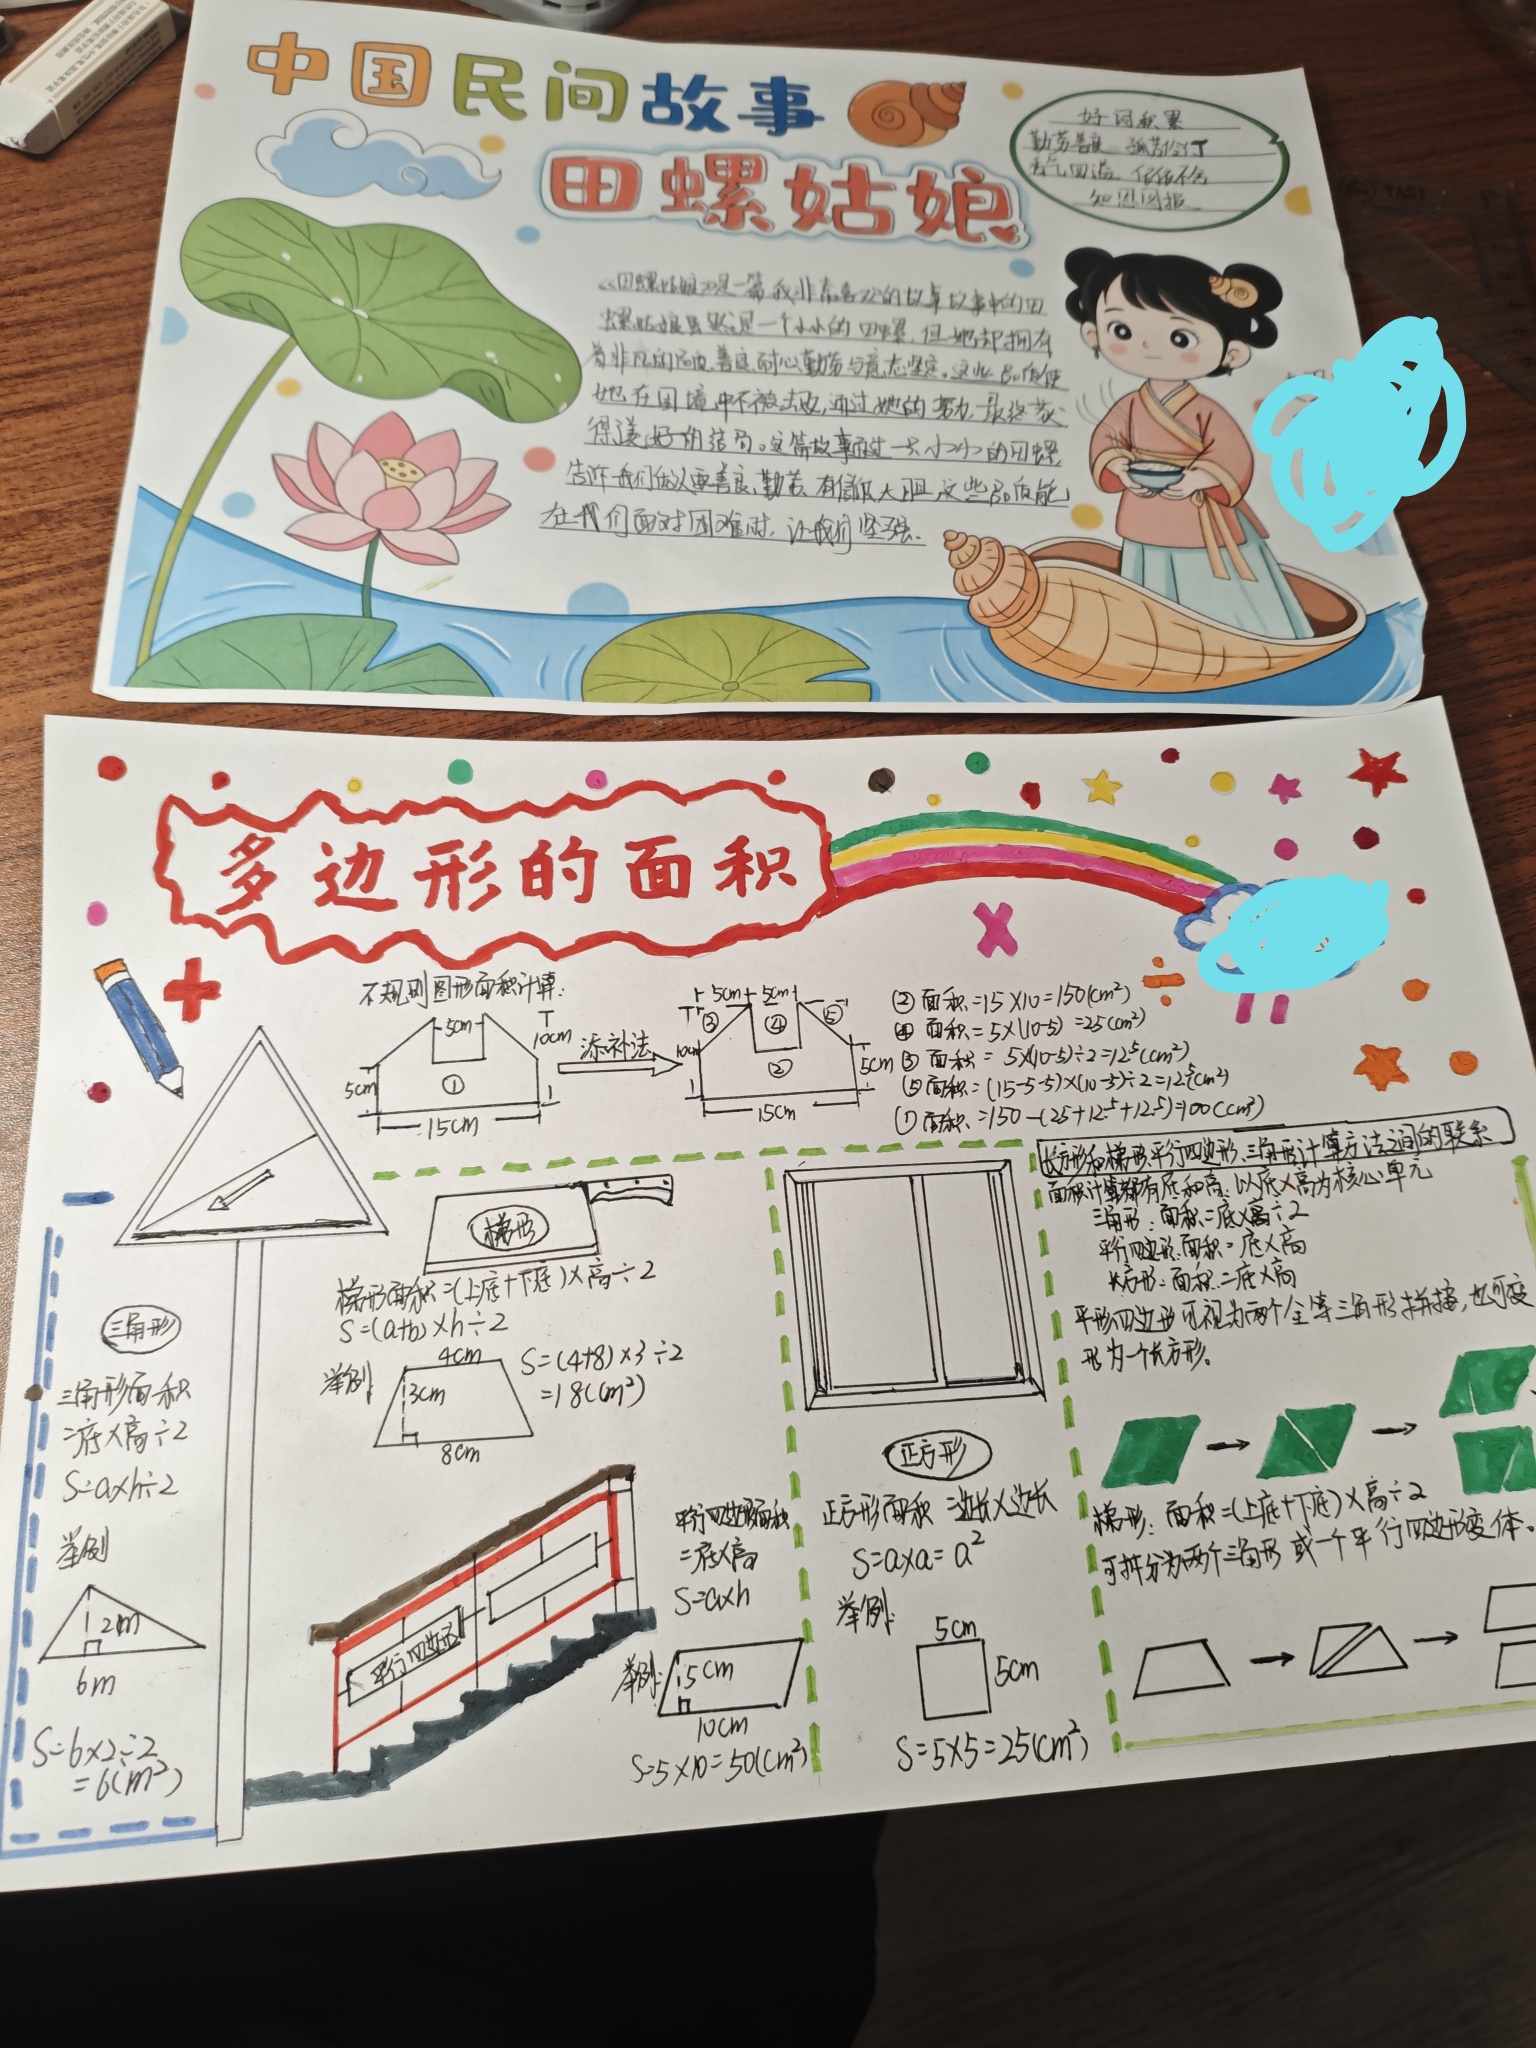 中国民间故事
田螺姑娘
好词积累
勤劳善良 孤苦伶仃
香气四溢 依依不舍
知恩图报
《田螺姑娘》是一篇我非常喜欢的故事故事中的田
螺姑娘虽然是一个小小的田螺,但她却拥有
着非凡的品质、善良、耐心、勤劳与意志坚定。这些品质使
她在困境中不被击败,通过她的努力,最终获
得美好的结局。这篇故事通过一只小小的田螺
告诉我们做人要善良、勤劳、有信心大胆,这些品质能
在我们面对困难时,让我们坚强.
多边形的面积
不规则图形面积计算:
5cm
10cm
5cm
①
15cm
添补法
5cm 5cm
③ ④ ⑤
10cm
②
5cm
15cm
②面积=15×10=150(cm²)
④面积=5×(10-5)=25(cm²)
③面积=5×(10-5)÷2=12.5(cm²)
⑤面积=(15-5-5)×(10-5)÷2=12.5(cm²)
①面积=150-(25+12.5+12.5)=100(cm²)
三角形
三角形面积
=底×高÷2
S=a×h÷2
举例
2m
6m
S=6×2÷2
=6(m²)
梯形
梯形面积=(上底+下底)×高÷2
S=(a+b)×h÷2
举例:
4cm
3cm
8cm
S=(4+8)×3÷2
=18(cm²)
平行四边形
平行四边形面积
=底×高
S=a×h
举例:
5cm
10cm
S=5×10=50(cm²)
正方形
正方形面积=边长×边长
S=a×a=a²
举例:
5cm
5cm
S=5×5=25(cm²)
长方形和梯形、平行四边形、三角形计算方法之间的联系
面积计算都有底和高,以底×高为核心单元
三角形:面积=底×高÷2
平行四边形:面积=底×高
长方形:面积=底×高
平形四边形可视为两个全等三角形拼接,也可变
形为一个长方形。
梯形:面积=(上底+下底)×高÷2
可拆分为两个三角形或一个平行四边形变体。